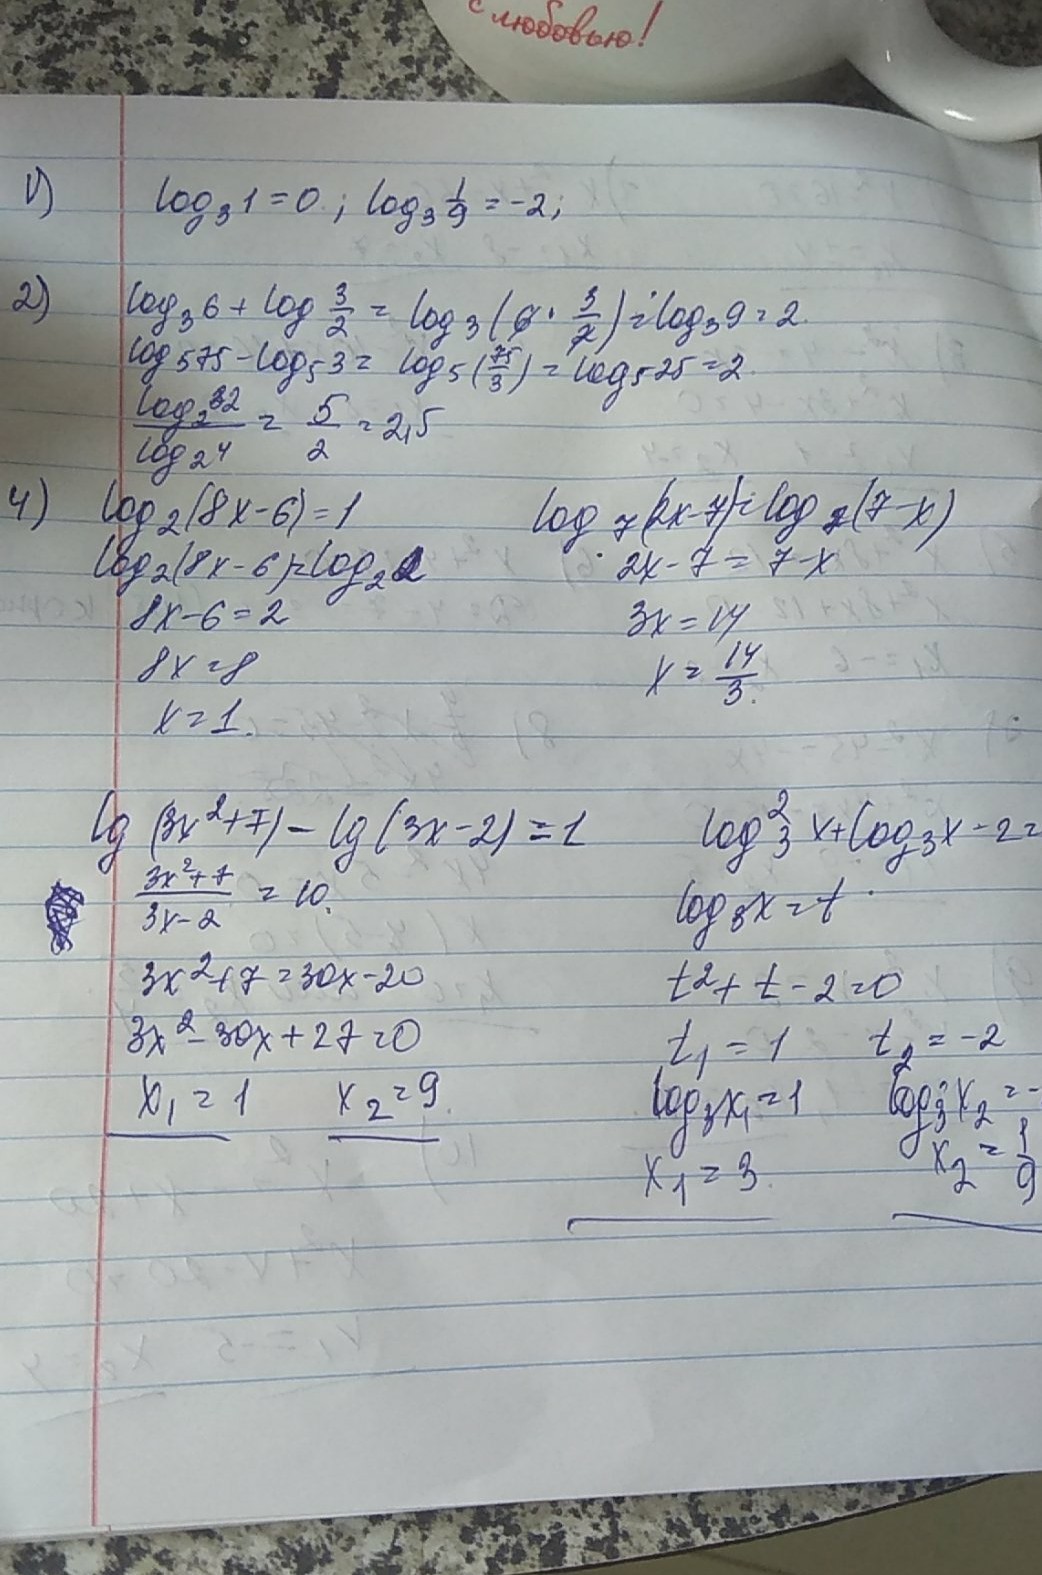 с любовью!
1) log₃1=0; log₃ 1/9 = -2;
2) log₃6 + log 3/2 = log₃(6 · 3/2) = log₃9 = 2.
log₅75 - log₅3 = log₅(75/3) = log₅25 = 2.
log₂32/log₂4 = 5/2 = 2,5
4) log₂(8x-6)=1
log₂(8x-6)=log₂2
8x-6=2
8x=8
x=1.
log₇(2x-7)=log₇(7-x)
2x-7=7-x
3x=14
x=14/3.
lg (3x²+7) - lg(3x-2)=1
(3x²+7)/(3x-2) = 10.
3x²+7=30x-20
3x²-30x+27=0
x₁=1 x₂=9.
log₃²x+log₃x-2=
log₃x=t
t²+t-2=0
t₁=1 t₂=-2
log₃x₁=1 log₃x₂=-
x₁=3. x₂=1/9